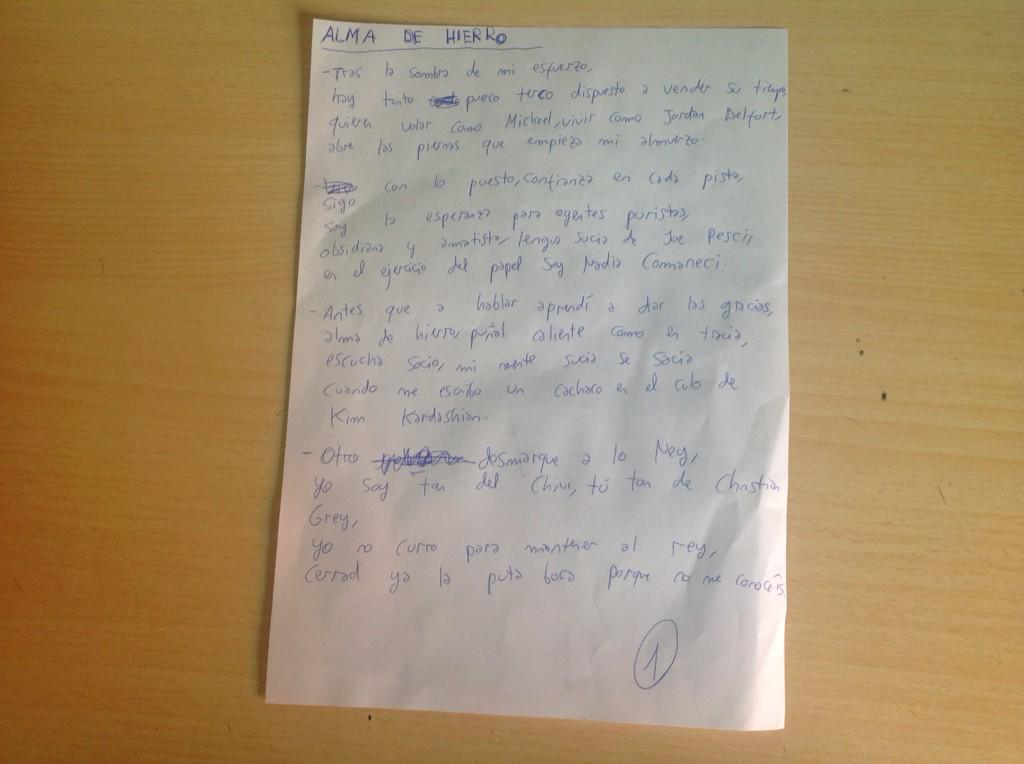 ALMA DE HIERRO
- Tras la sombra de mi esfuerzo,
hay tanto puerco terco dispuesto a vender su tiempo,
quieren volar como Michael, vivir como Jordan Belfort,
abre las piernas que empieza mi almuerzo.
con lo puesto, confianza en cada pista,
sigo
soy la esperanza para oyentes puristas,
obsidiana y amatista, lengua sucia de Joe Pesci,
en el ejercicio del papel soy Nadia Comaneci.
- Antes que a hablar aprendí a dar las gracias,
alma de hierro, puñal caliente como en tracia,
escucha socio, mi mente sucia se sacia
cuando me escribo un cachaco en el culo de
Kim Kardashian.
- Otro desmarque a lo Ney,
Yo soy tan del Chivi, tú tan de Christian
Grey,
yo no curro para mantener al rey,
cerrad ya la puta boca porque no me conocéis.
1